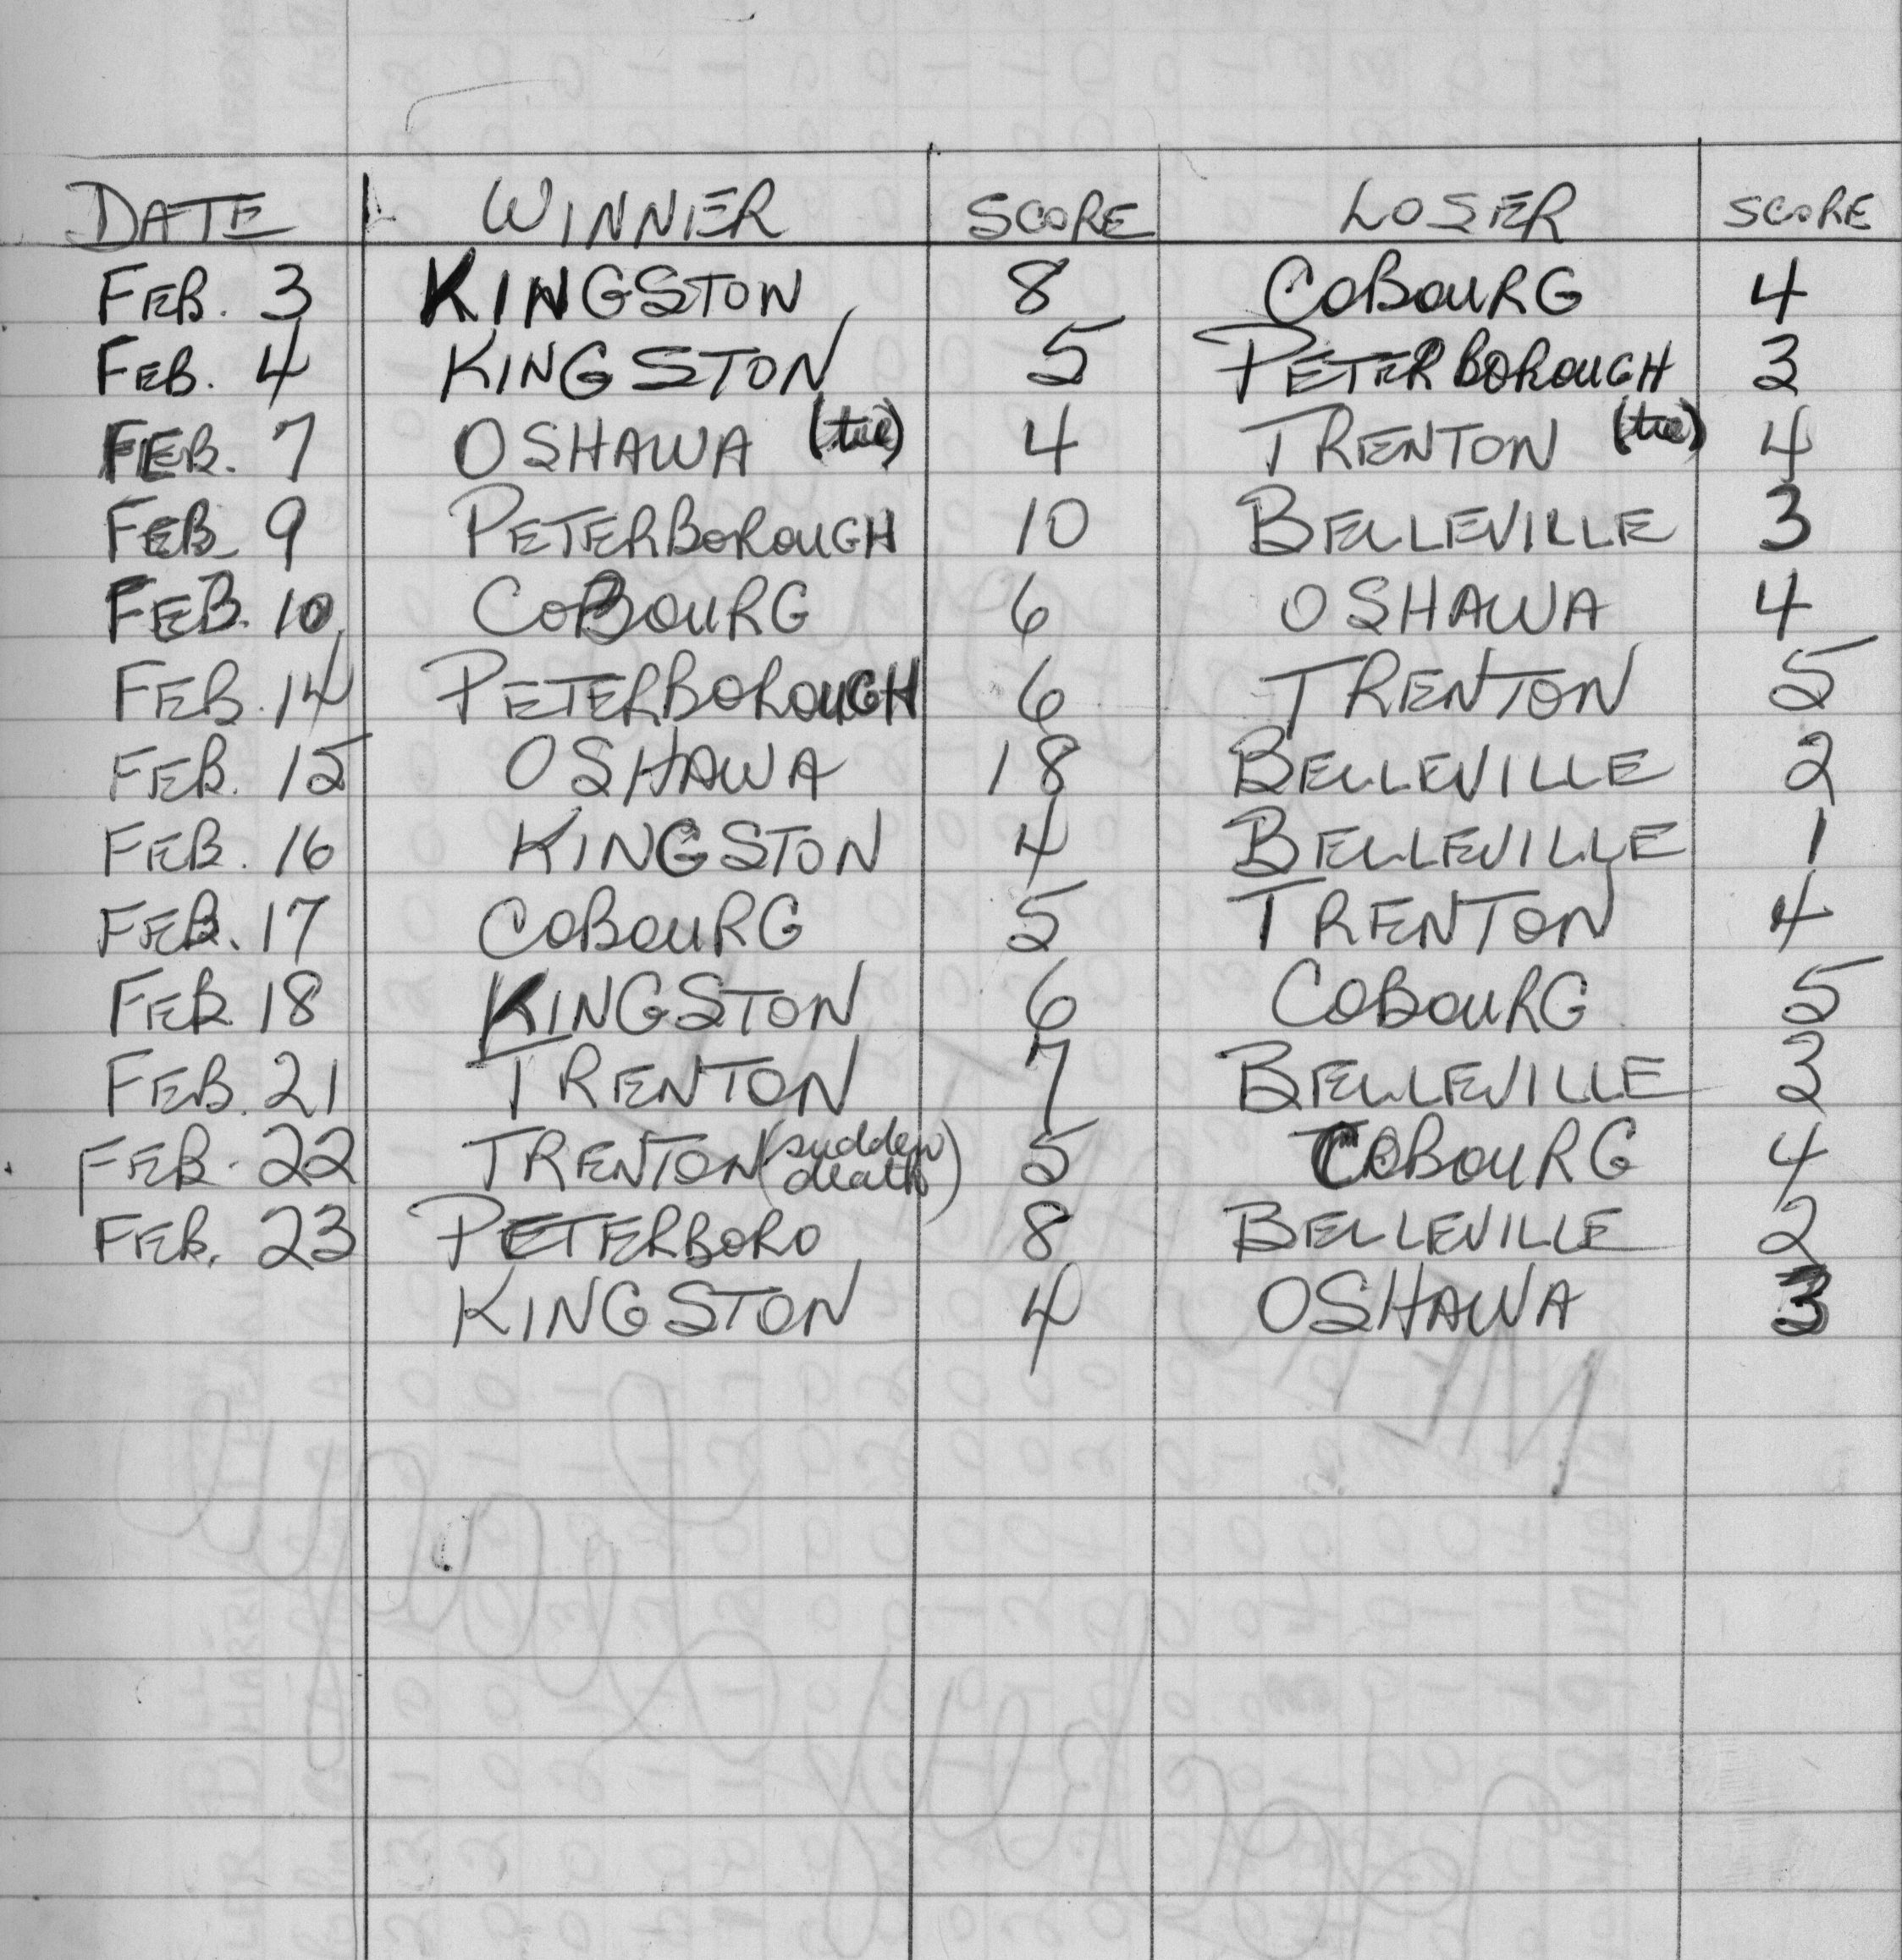 DATE WINNER SCORE LOSER SCORE
FEB. 3 KINGSTON 8 COBOURG 4
FEB. 4 KINGSTON 5 PETERBOROUGH 3
FEB. 7 OSHAWA (tie) 4 TRENTON (tie) 4
FEB. 9 PETERBOROUGH 10 BELLEVILLE 3
FEB. 10 COBOURG 6 OSHAWA 4
FEB. 14 PETERBOROUGH 6 TRENTON 5
FEB. 15 OSHAWA 18 BELLEVILLE 2
FEB. 16 KINGSTON 4 BELLEVILLE 1
FEB. 17 COBOURG 5 TRENTON 4
FEB. 18 KINGSTON 6 COBOURG 5
FEB. 21 TRENTON 7 BELLEVILLE 3
FEB. 22 TRENTON (sudden death) 5 COBOURG 4
FEB. 23 PETERBORO 8 BELLEVILLE 2
KINGSTON 4 OSHAWA 3